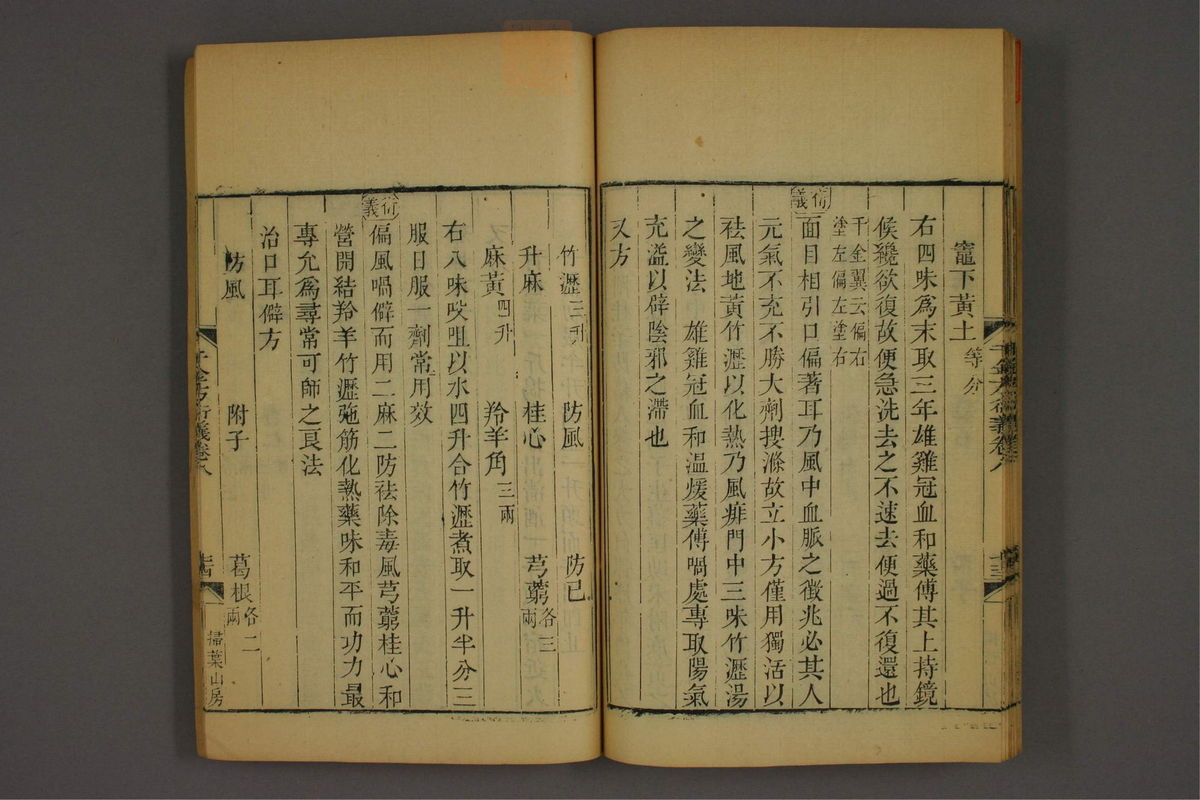 竈下黃土等分
右四味爲末取三年雄雞冠血和藥傅其上持鏡
候纔欲復故便急洗去之不速去便過不復還也
千金翼云偏右
塗左偏左塗右
衍義
面目相引口偏著耳乃風中血脈之徵兆必其人
元氣不充不勝大劑搜滌故立小方僅用獨活以
祛風地黃竹瀝以化熱乃風痱門中三味竹瀝湯
之變法雄雞冠血和温煖藥傅喎處專取陽氣
充溢以辟陰邪之滯也
又方
竹瀝三升 防風 防己
升麻 桂心 芎藭各三兩
麻黃四升 羚羊角三兩
右八味㕮咀以水四升合竹瀝煮取一升半分三
服日服一劑常用效
衍義
偏風喎僻而用二麻二防祛除毒風芎藭桂心和
營開結羚羊竹瀝弛筋化熱藥味和平而功力最
專允爲尋常可師之良法
治口耳僻方
防風 附子 葛根各二兩
千金方衍義卷八
掃葉山房